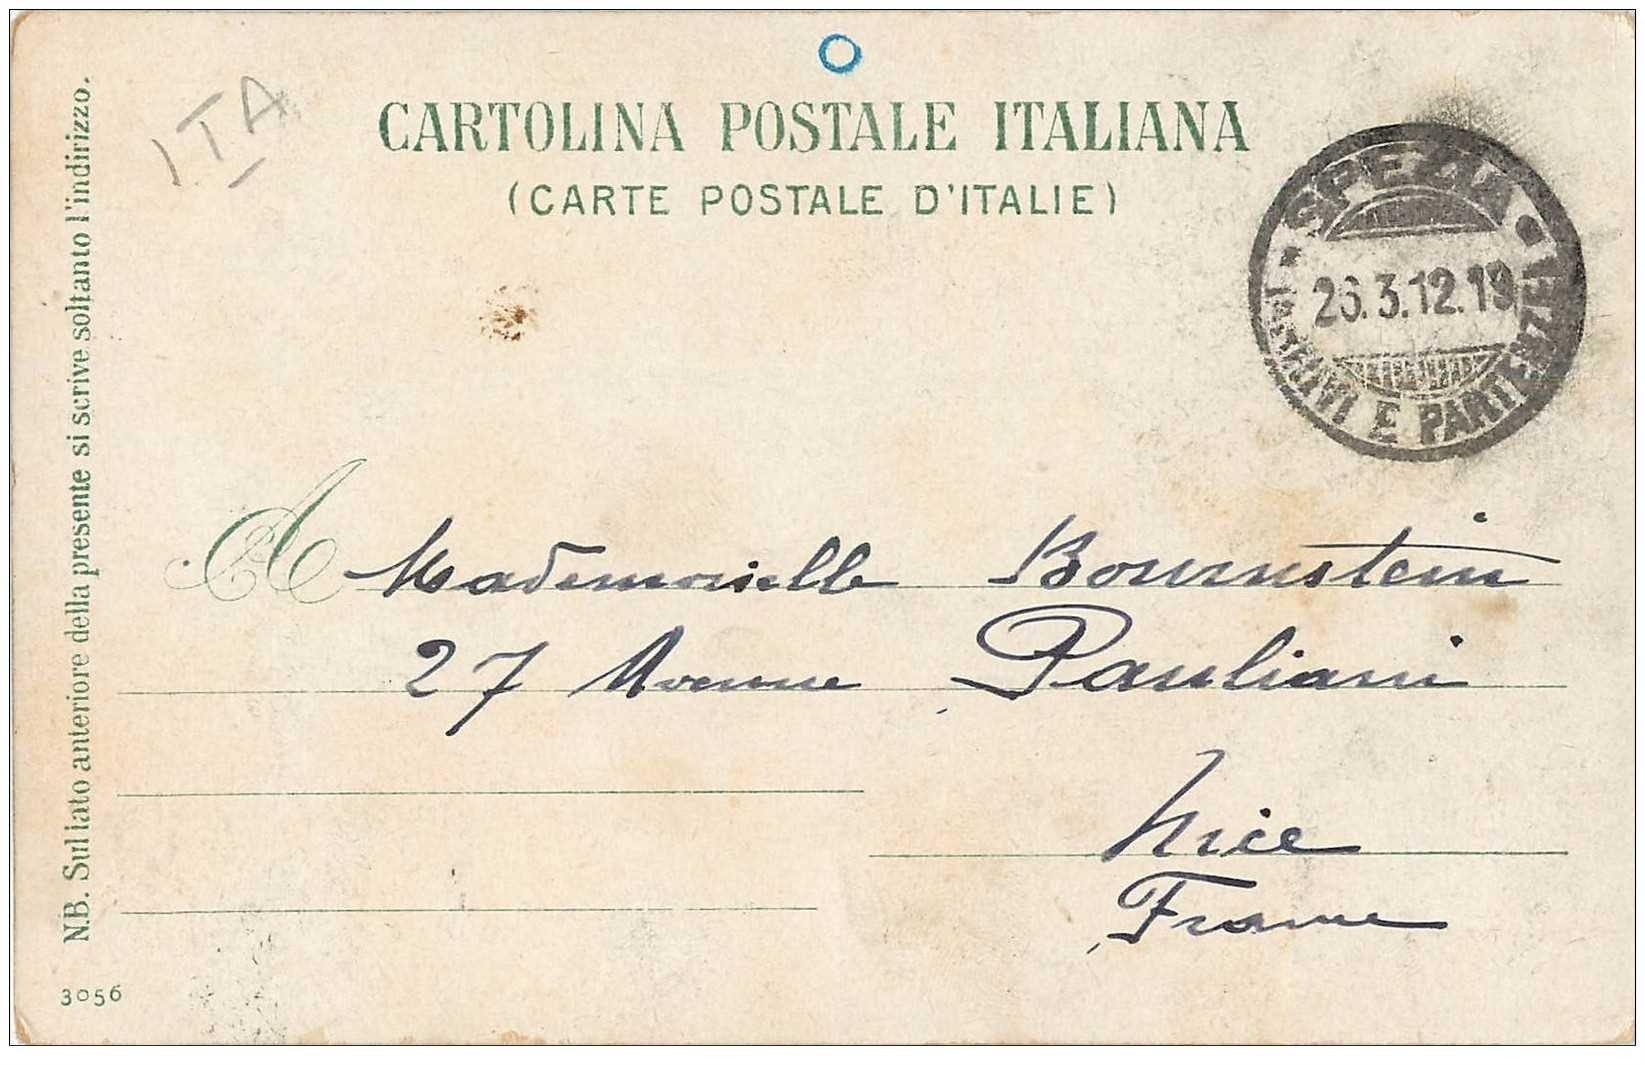 ITA
CARTOLINA POSTALE ITALIANA
(CARTE POSTALE D'ITALIE)
SPEZIA
26.3.12.19
(ARRIVI E PARTENZE)
N.B. Sul lato anteriore della presente si scrive soltanto l'indirizzo.
A Mademoiselle Bournstein
27 Avenue Pauliani
Nice
France
3056